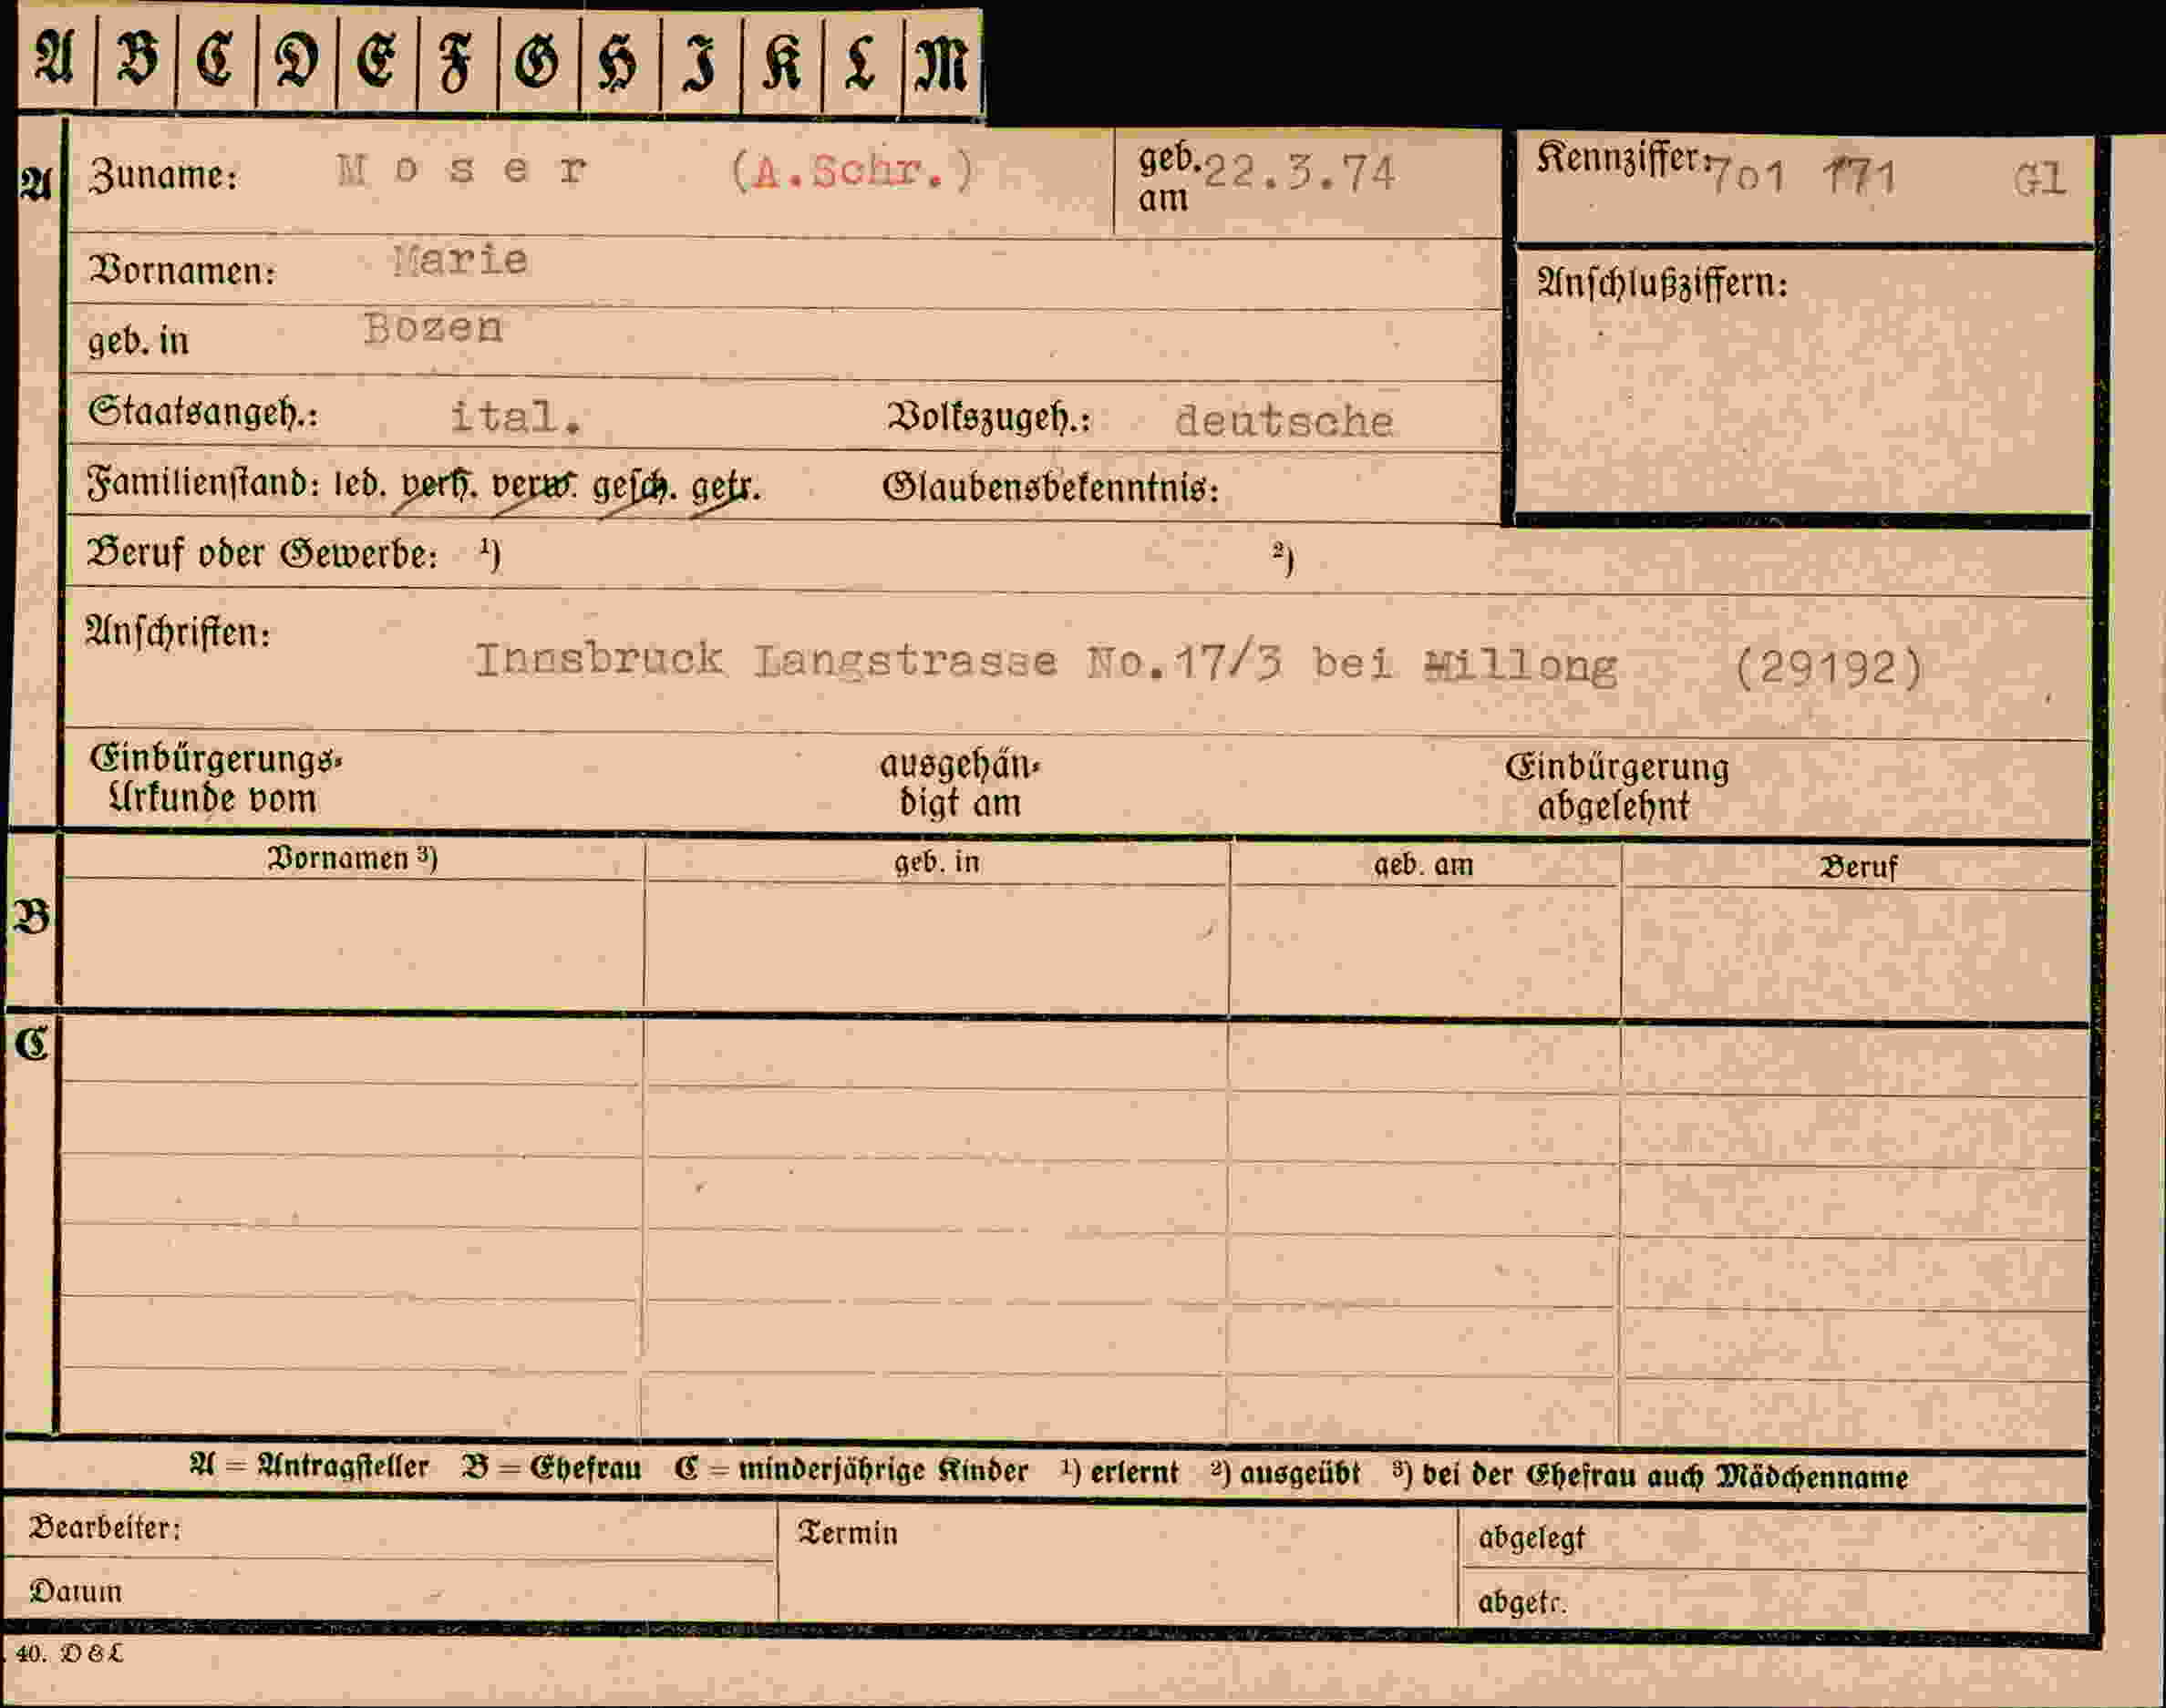 A B C D E F G H I K L M
A Zuname: Moser (A.Schr.) geb. am 22.3.74 Kennziffer: 701 171 Gl
Vornamen: Marie
Anschlußziffern:
geb. in Bozen
Staatsangeh.: ital. Volkszugeh.: deutsche
Familienstand: led. verh. verw. gesch. getr. Glaubensbekenntnis:
Beruf oder Gewerbe: ¹) ²)
Anschriften:
Innsbruck Langstrasse No.17/3 bei Millong (29192)
Einbürgerungs- ausgehän- Einbürgerung
Urkunde vom digt am abgelehnt
Vornamen ³) geb. in geb. am Beruf
B
C
A = Antragsteller B = Ehefrau C = minderjährige Kinder ¹) erlernt ²) ausgeübt ³) bei der Ehefrau auch Mädchenname
Bearbeiter: Termin abgelegt
Datum abgetr.
40. D & L